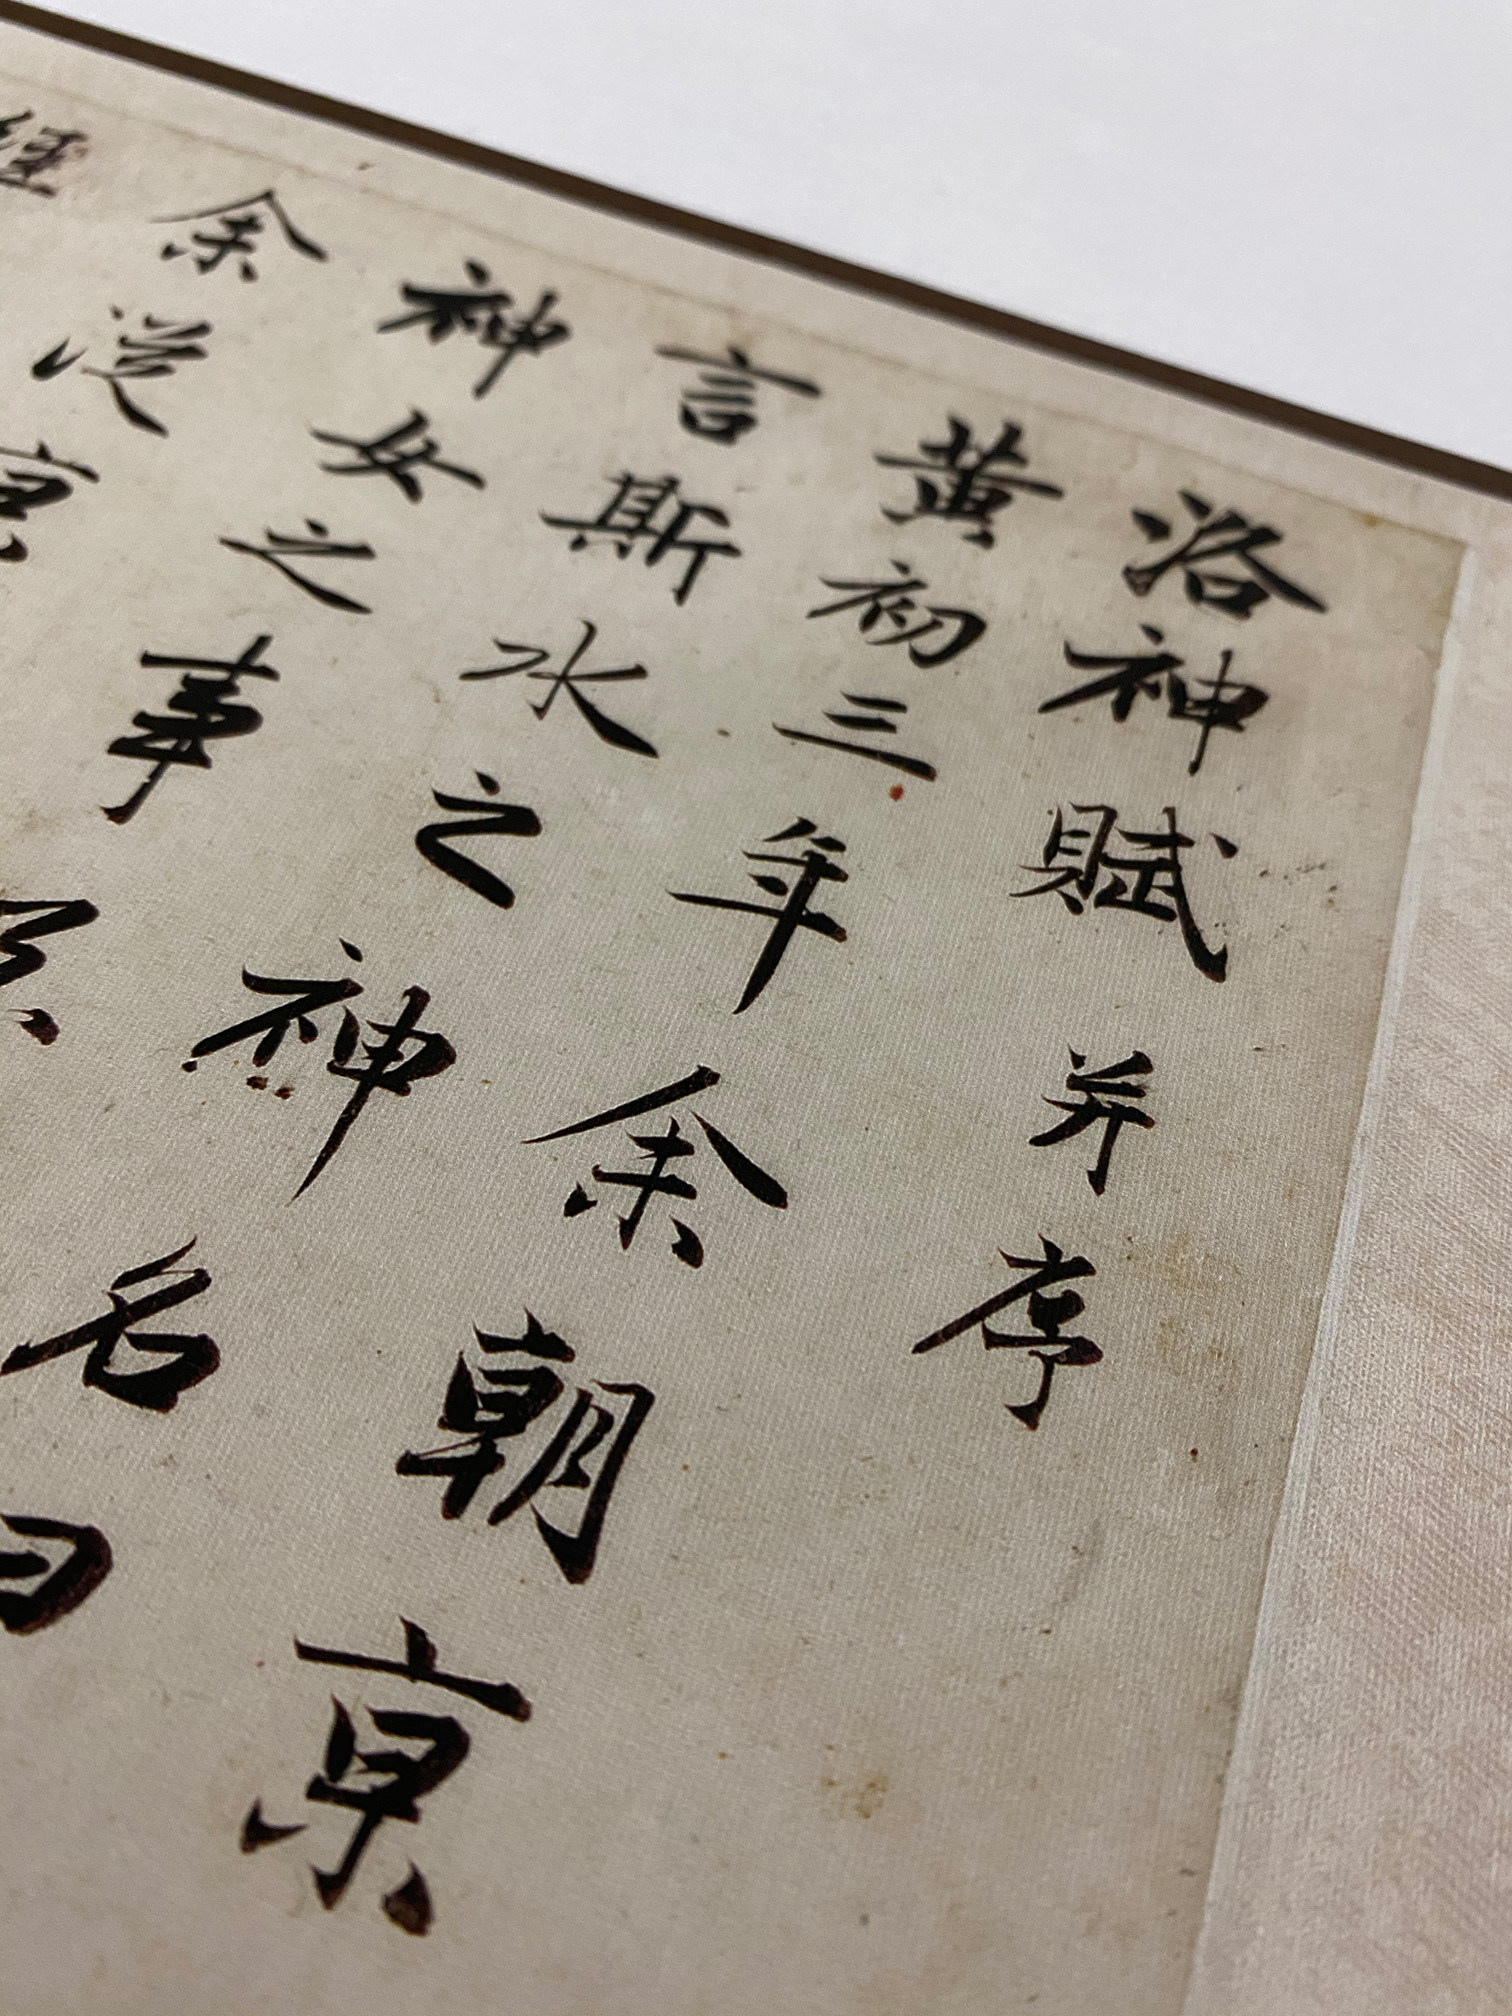 洛神賦并序
黄初三年余朝京
言斯水之神名曰
神女之事
余從京
經